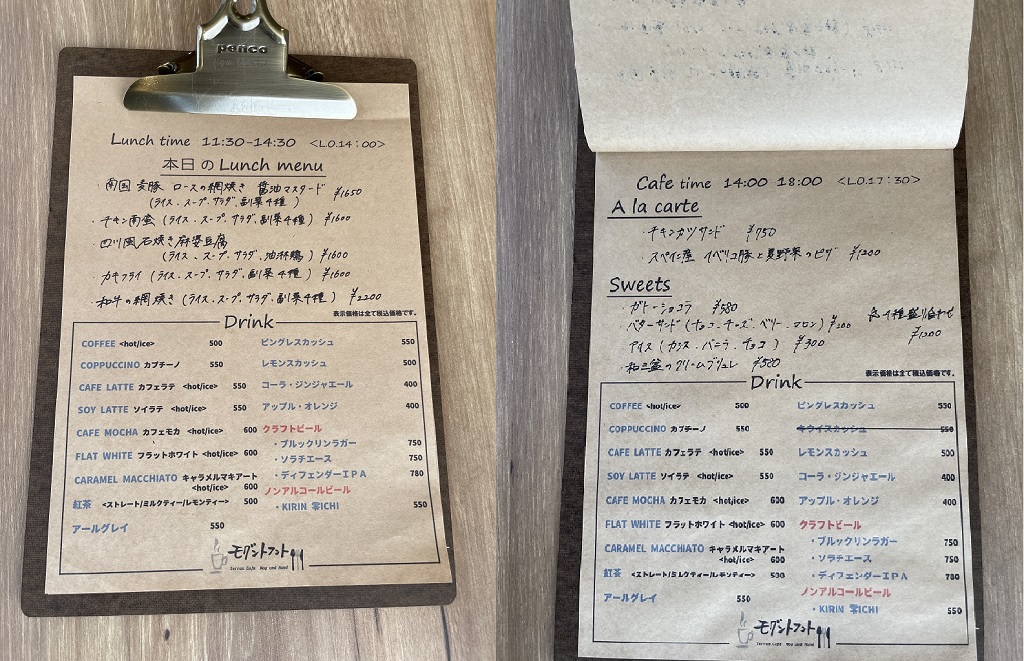 penco
Lunch time 11:30-14:30 <L.O.14:00>
本日の Lunch menu
・南国麦豚 ロースの網焼き 醤油マスタード
(ライス、スープ、サラダ、副菜4種) ¥1650
・チキン南蛮 (ライス、スープ、サラダ、副菜4種) ¥1600
・四川風石焼き麻婆豆腐
(ライス、スープ、サラダ、油淋鶏) ¥1600
・カキフライ (ライス、スープ、サラダ、副菜4種) ¥1600
・和牛の網焼き (ライス、スープ、サラダ、副菜4種) ¥2200
表示価格は全て税込価格です。
Drink
COFFEE <hot/ice> 500
COPPUCCINO カプチーノ 550
CAFE LATTE カフェラテ <hot/ice> 550
SOY LATTE ソイラテ <hot/ice> 550
CAFE MOCHA カフェモカ <hot/ice> 600
FLAT WHITE フラットホワイト <hot/ice> 600
CARAMEL MACCHIATO キャラメルマキアート
<hot/ice> 600
紅茶 <ストレート/ミルクティー/レモンティー> 500
アールグレイ 550
ピングレスカッシュ 550
レモンスカッシュ 500
コーラ・ジンジャエール 400
アップル・オレンジ 400
クラフトビール
・ブルックリンラガー 750
・ソラチエース 750
・ディフェンダーIPA 780
ノンアルコールビール
・KIRIN 零ICHI 550
モグントフント
Terras Cafe Mog und Hund
Cafe time 14:00 18:00 <L.O.17:30>
A la carte
・チキンカツサンド ¥750
・スペイン産 イベリコ豚と夏野菜のピザ ¥1200
Sweets
・ガトーショコラ ¥580
・バターサンド (チョコ、チーズ、ベリー、マロン) ¥200
・アイス (カシス、バニラ、チョコ) ¥300
・和三盆のクリームブリュレ ¥500
4種盛り合わせ
¥1200
表示価格は全て税込価格です。
Drink
COFFEE <hot/ice> 500
COPPUCCINO カプチーノ 550
CAFE LATTE カフェラテ <hot/ice> 550
SOY LATTE ソイラテ <hot/ice> 550
CAFE MOCHA カフェモカ <hot/ice> 600
FLAT WHITE フラットホワイト <hot/ice> 600
CARAMEL MACCHIATO キャラメルマキアート
<hot/ice> 600
紅茶 <ストレート/ミルクティー/レモンティー> 500
アールグレイ 550
ピングレスカッシュ 550
キウイスカッシュ 550
レモンスカッシュ 500
コーラ・ジンジャエール 400
アップル・オレンジ 400
クラフトビール
・ブルックリンラガー 750
・ソラチエース 750
・ディフェンダーIPA 780
ノンアルコールビール
・KIRIN 零ICHI 550
モグントフント
Terras Cafe Mog und Hund